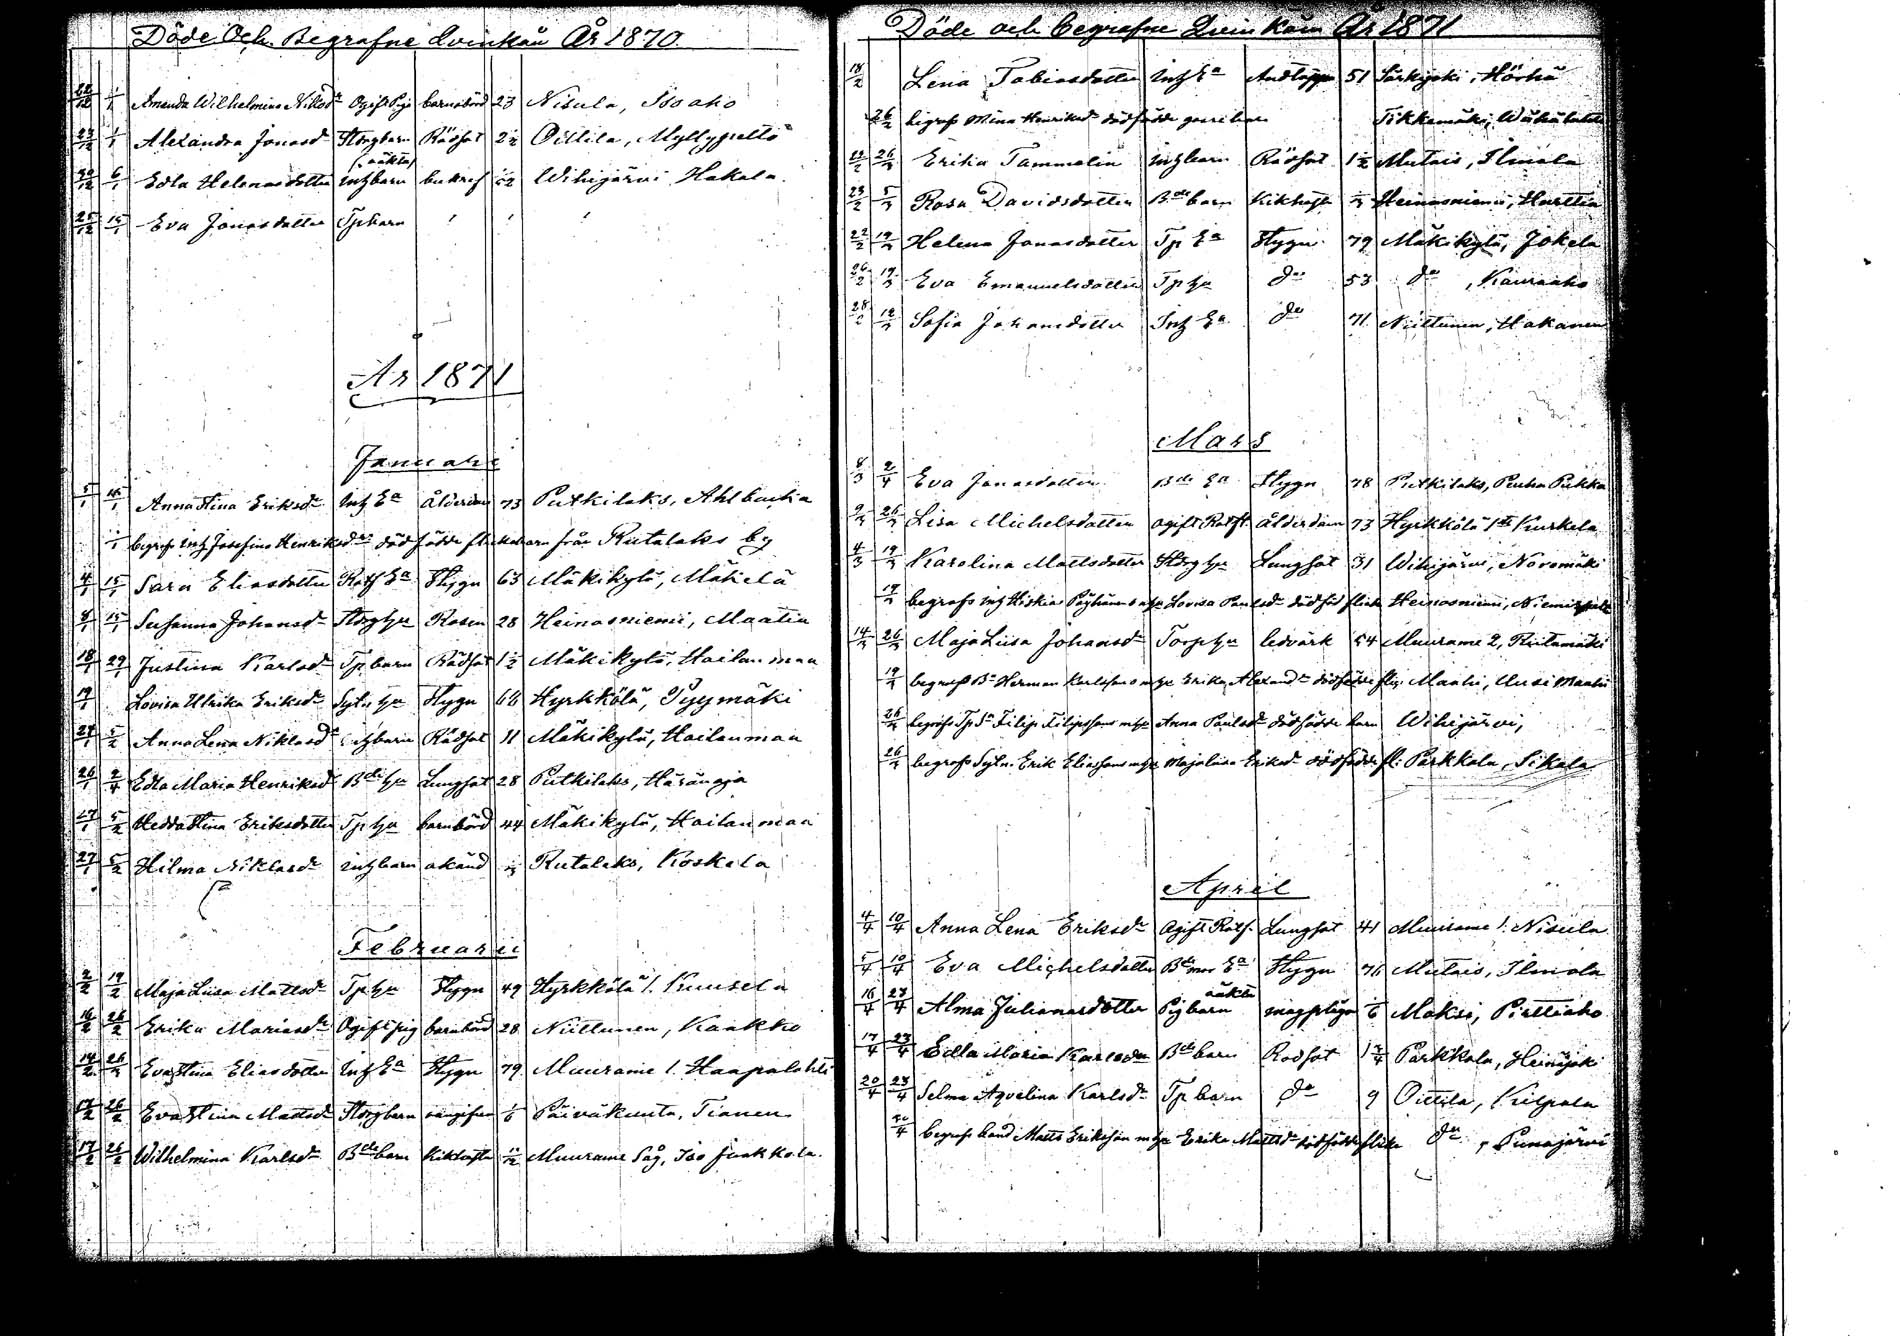 Döde Och Begrafne Qvinkön År 1870.
22/12 1/1 Amanda Wilhelmina Niksdr Ogift Pig barnsbörd 23 Nisula, Isoaho
23/12 1/1 Alexandra Jonasdr Storgbarn Rödsot 2½ Oittila, Myllypelto
oäkta
30/12 6/1 Edla Helenasdotter Inhbarn Wihijärvi Hakala.
25/12 15/1 Eva Jonasdotter Tpbarn
År 1871
Januari
5/1 15/1 Anna Stina Eriksdr Inh Ea ålderdom 73 Putkilaks, Ahlbacka
begrofs Inh Josefina Henriksdrs dödfödde flickebarn från Rutalaks by
4/1 15/1 Sara Eliasdotter Rotf Ea Stygn 63 Mäkikylä, Mäkelä
8/1 15/1 Susanna Johansd Storghu Rosen 28 Heinosniemi, Maatia
18/1 29/1 Justina Karlsd Tp barn Rödsot 1½ Mäkikylä, Hoilanmaa
19/1 Lovisa Ulrika Eriksd Sytn hu Stygn 66 Hyrkkölä, Pyymäki
27/1 5/2 Anna Lena Niklasdr Inhbarn Rödsot 11 Mäkikylä, Hoilanmaa
26/1 2/4 Edla Maria Henriksd Bde hu Lungsot 28 Putkilaks, Häränoja
27/1 5/2 Hedda Stina Eriksdotter Tp hu barnbörd 44 Mäkikylä, Hoilanmaa
27/1 5/2 Hilma Niklasdr inhbarn okänd Rutalaks, Koskela
Februari
2/2 19/2 Maja Lisa Mattsdr Tp hu Stygn 49 Hyrkkölä 1. Kuusela
16/2 26/2 Erika Mariasdr Ogift pig barnbörd 28 Niittunen, Kaakko
14/2 26/2 Eva Stina Eliasdotter Inh Ea Stygn 79 Muurame 1. Haapalahti
17/2 26/2 Eva Stina Mattsd Storgbarn Päiväkunta, Tianen
17/2 26/2 Wilhelmina Karlsd Bdebarn Kikhosta 11/12 Muurame Såg, Iso Juokkola.
Döde och begrafne Qvinkön År 1871
18/2 Lena Tobiasdotter Inh Ea Andtäppa 51 Särkijoki, Hörhä
26/2 begrofs Mina Henriksdr dödfödde Tikkamäki,
26/2 Erika Tammelin Inhbarn Rödsot 1½ Mutais, Ilmola
23/2 5/3 Rosa Davidsdotter Bdebarn Kikhosta Heinosniemi, Harttia
22/2 19/3 Helena Jonasdotter Tp Ea Stygn 79 Mäkikylä, Jokela
26/2 19/3 Eva Emanuelsdotter Tp hu do 53 do, Kauraaho
28/2 12/3 Sofia Johansdotter Inh Ea do 71 Niittunen, Hakanen
Mars
8/3 2/4 Eva Jonasdotter Bde Ea Stygn 78 Putkilaks,
9/3 26/3 Lisa Michelsdotter ogift Rotft. ålderdom 73 Hyrkkölä 1sta Kurkela
4/3 19/3 Karolina Mattsdotter Storg hu Lungsot 31 Wihijärvi, Noromäki
19/3 begrofs Inh Lovisa Paulsdr dödföd flicka Heinosniemi,
14/3 26/3 Maja Liisa Johansd Torp hu ledvärk 54 Muurame 2, Riitamäki
19/3 begrofs Bde Herman Karlssons m hu Erika Alexandr dödfödde fli. Maatia, Uusi Maatia
26/3 begrofs Tp Sn Filip Filipssons m hu Anna Paulsd dödfödde barn Wihijärvi,
26/3 begrofs Sytn. Erik Eliassons m hu Maja Lisa Eriksd dödfödde fl. Parkkola, Sikala
April
4/4 10/4 Anna Lena Eriksdr Ogift Rotf. Lungsot 41 Muurame 1. Nisula
5/4 10/4 Eva Michelsdotter Bdemor Ea Stygn 76 Mutais, Ilmola
oäkta
16/4 23/4 Alma Julianasdotter Pigbarn magplågor Maksi, Pirttiaho
17/4 23/4 Edla Maria Karlsdr Bdebarn Rodsot Parkkola, Heinijoki
20/4 23/4 Selma Aqvelina Karlsdr Tp barn do 9 Oittila, Kilpala
begrofs band Matts Eriksson m hu Erika Mattsdr dödfödde flicka do, Punajärvi